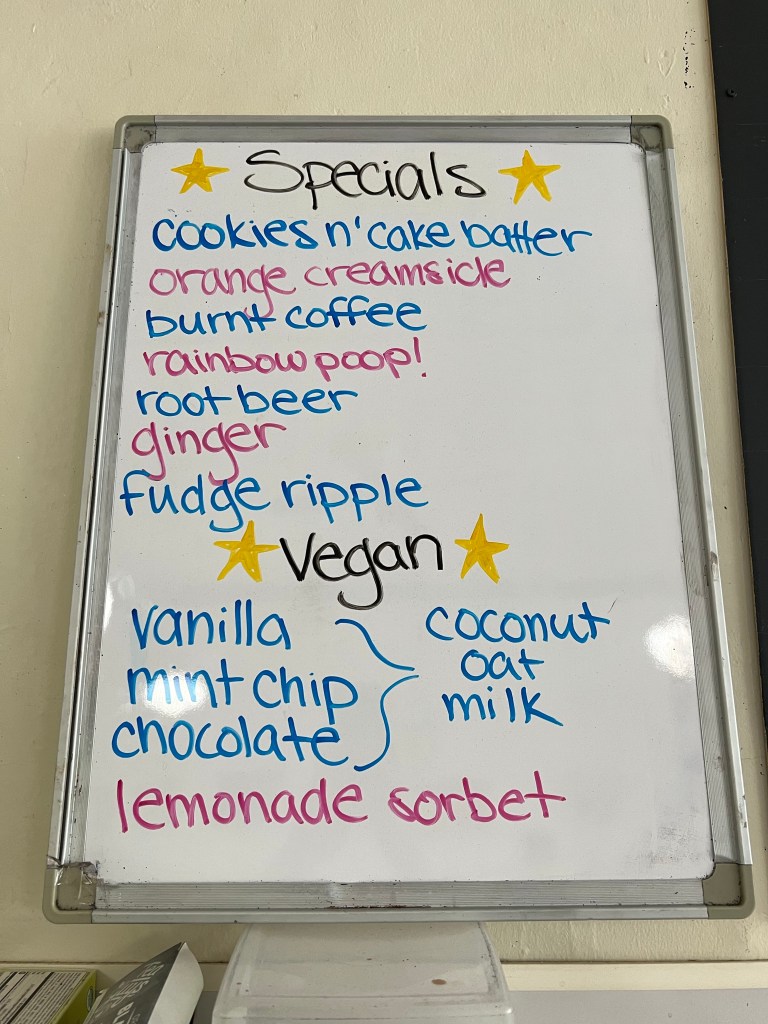 Specials
cookies n' cake batter
orange creamsicle
burnt coffee
rainbow poop!
root beer
ginger
fudge ripple
Vegan
vanilla
mint chip
chocolate
coconut
oat
milk
lemonade sorbet